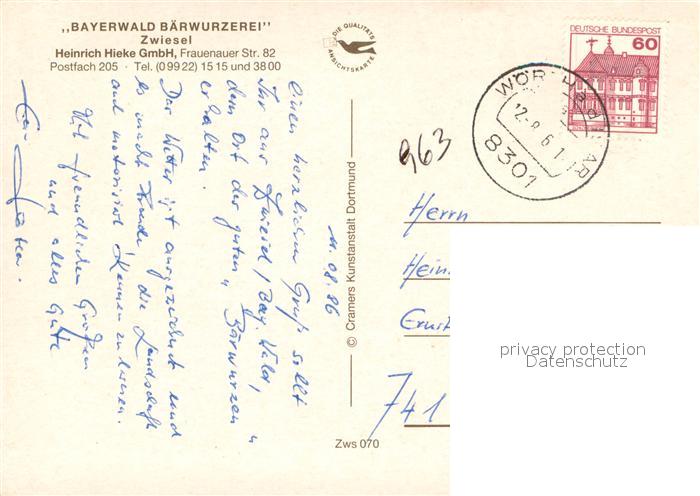 „BAYERWALD BÄRWURZEREI”
Zwiesel
Heinrich Hieke GmbH, Frauenauer Str. 82
Postfach 205 · Tel. (0 99 22) 15 15 und 38 00
DIE QUALITÄTS
ANSICHTSKARTE
DEUTSCHE BUNDESPOST
60
WÖRTH a d ISAR
12.-8.
8301
963
11.08.86
Einen herzlichen Gruß sollt
Ihr aus Zwiesel / Bay. Wald,
dem Ort des guten „Bärwurzen"
erhalten.
Das Wetter ist ausgezeichnet und
es macht Freude die Landschaft
auch motorisiert kennen zu lernen.
Mit freundlichen Grüßen
und alles Gute
© Cramers Kunstanstalt Dortmund
Zws 070
Herrn
Hein
Ernst
741
privacy protection
Datenschutz